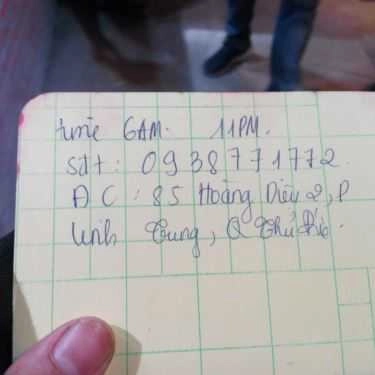 time 6AM. 11PM.
Sđt: 0938771772.
ĐC: 85 Hoàng Diệu 2, P
Linh Trung, Q Thủ Đức.